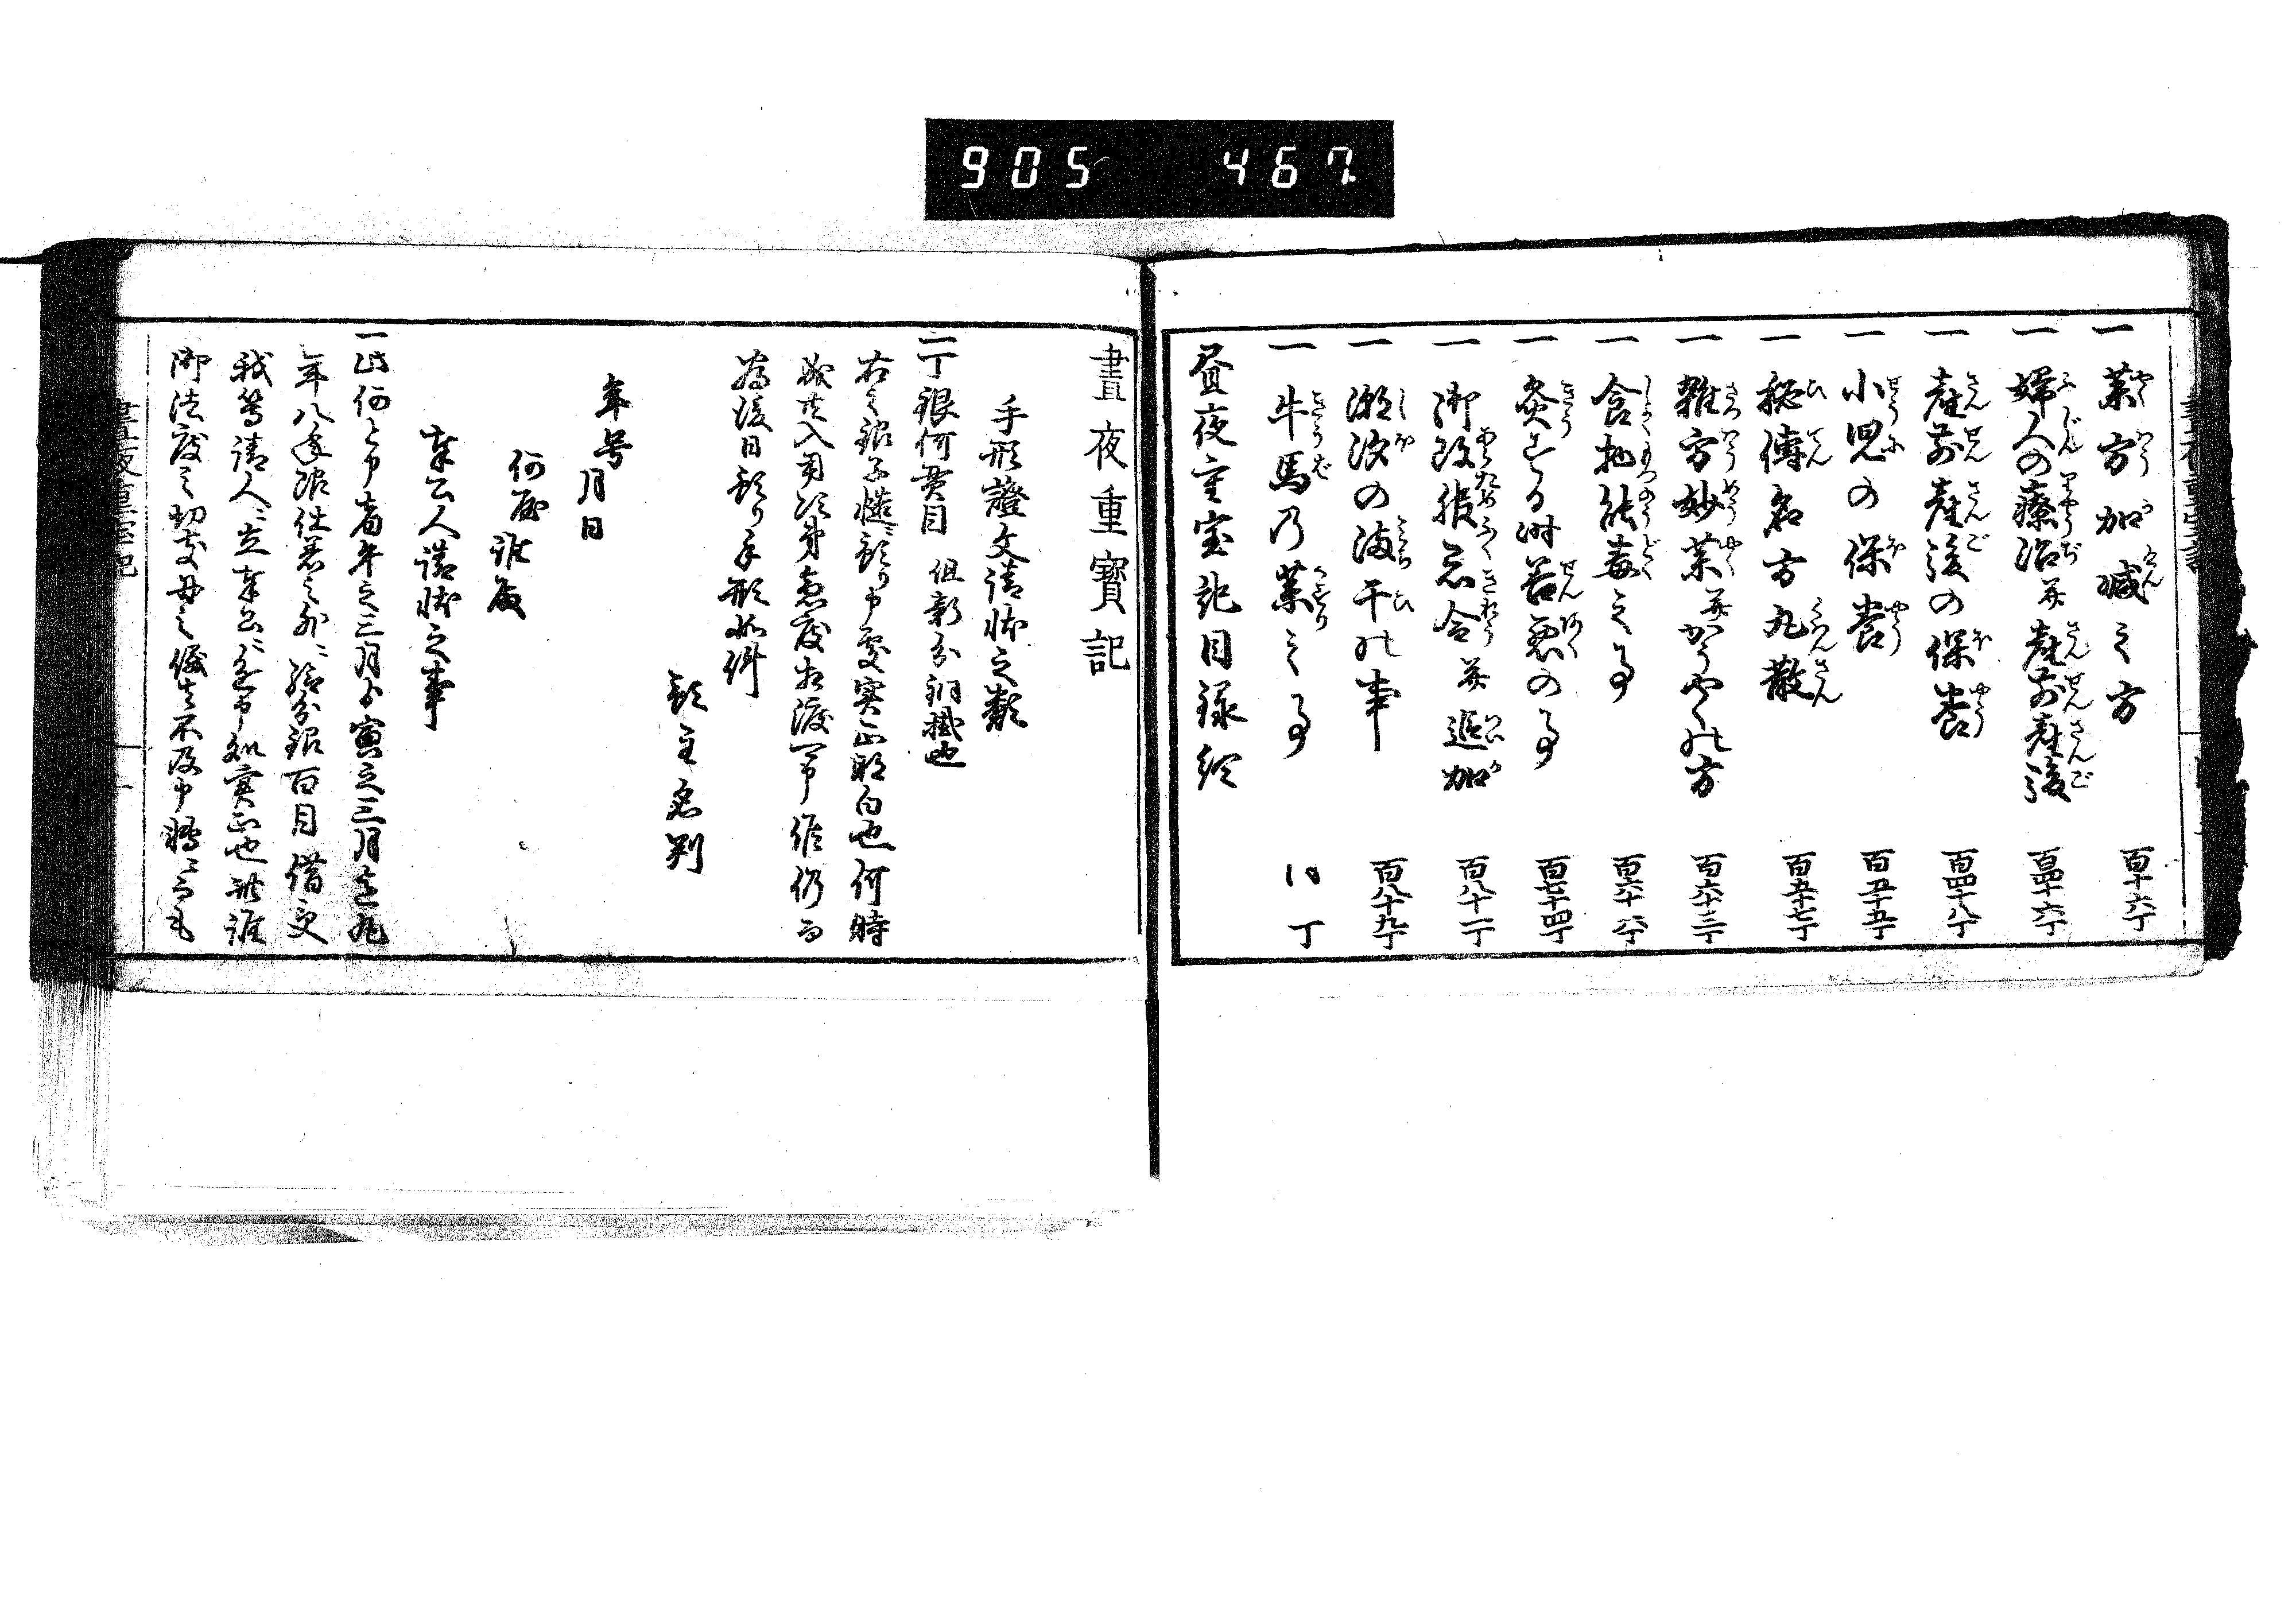 905 467
一 薬方加減之方 百十六丁
一 婦人の療治并産前産後 百四十六丁
一 産前産後の保養 百四十八丁
一 小児の保養 百五十五丁
一 秘傳名方丸散 百五十七丁
一 雑方妙薬并かうやくの方 百六十三丁
一 食物能毒之事 百六十六丁
一 灸する時善悪の事 百七十四丁
一 御改服忌令并追加 百八十一丁
一 潮汐の満干の事 百八十九丁
一 牛馬乃薬之事 同丁
昼夜重宝記目録終
晝夜重寶記
手形證文請状之類
一 丁銀何貫目 但新分銅掛也
右之銀子慥ニ預り申處実正明白也何時
成共入用次第急度相渡可申候仍而
為後日預り手形如件
預主名判
年号月日
何屋誰殿
奉公人請状之事
一此何と申者午之三月ゟ寅之三月迄丸
年八年限仕着之外ニ給分銀百目借受
我等請人ニ立奉公ニ
御法度之切支丹之
晝夜重宝記